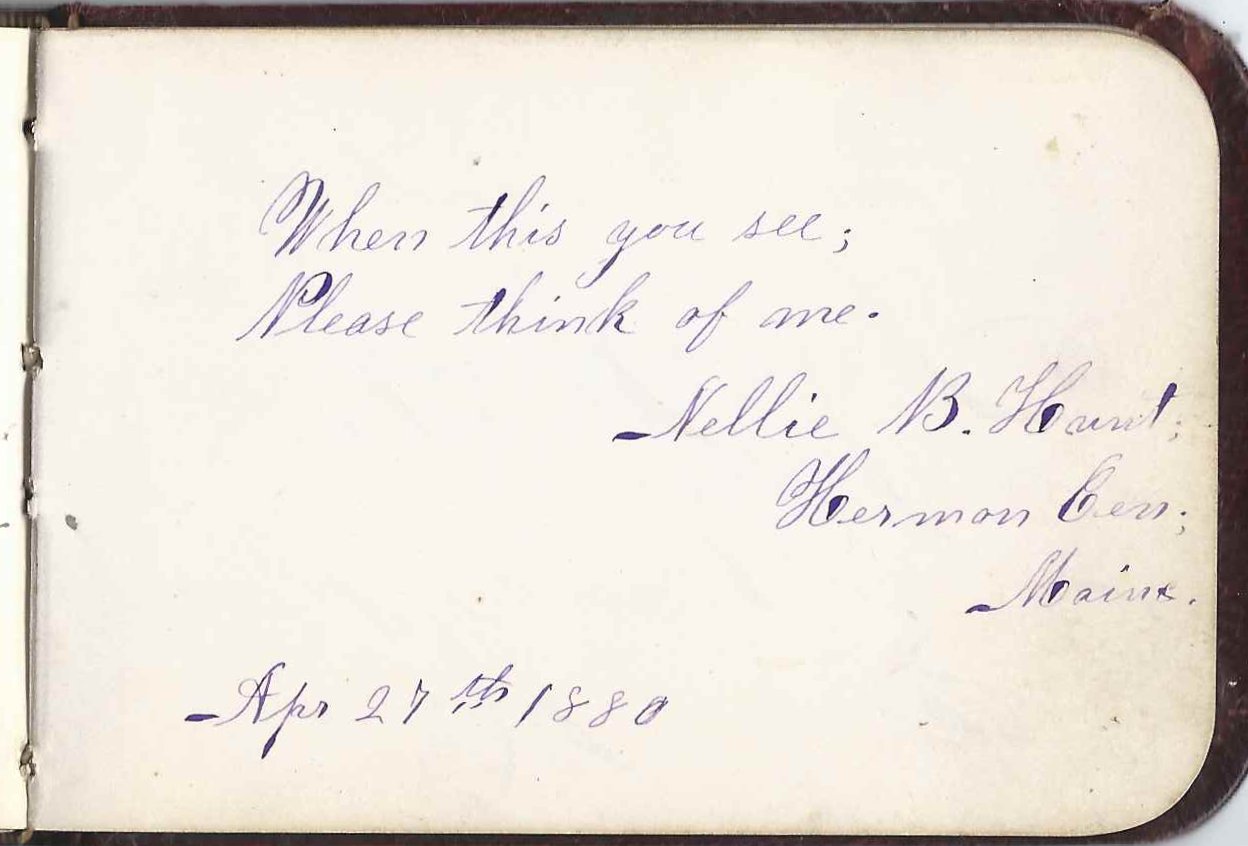 When this you see;
Please think of me.
Nellie B. Hunt;
Hermon Cen;
Maine.
Apr 27th 1880